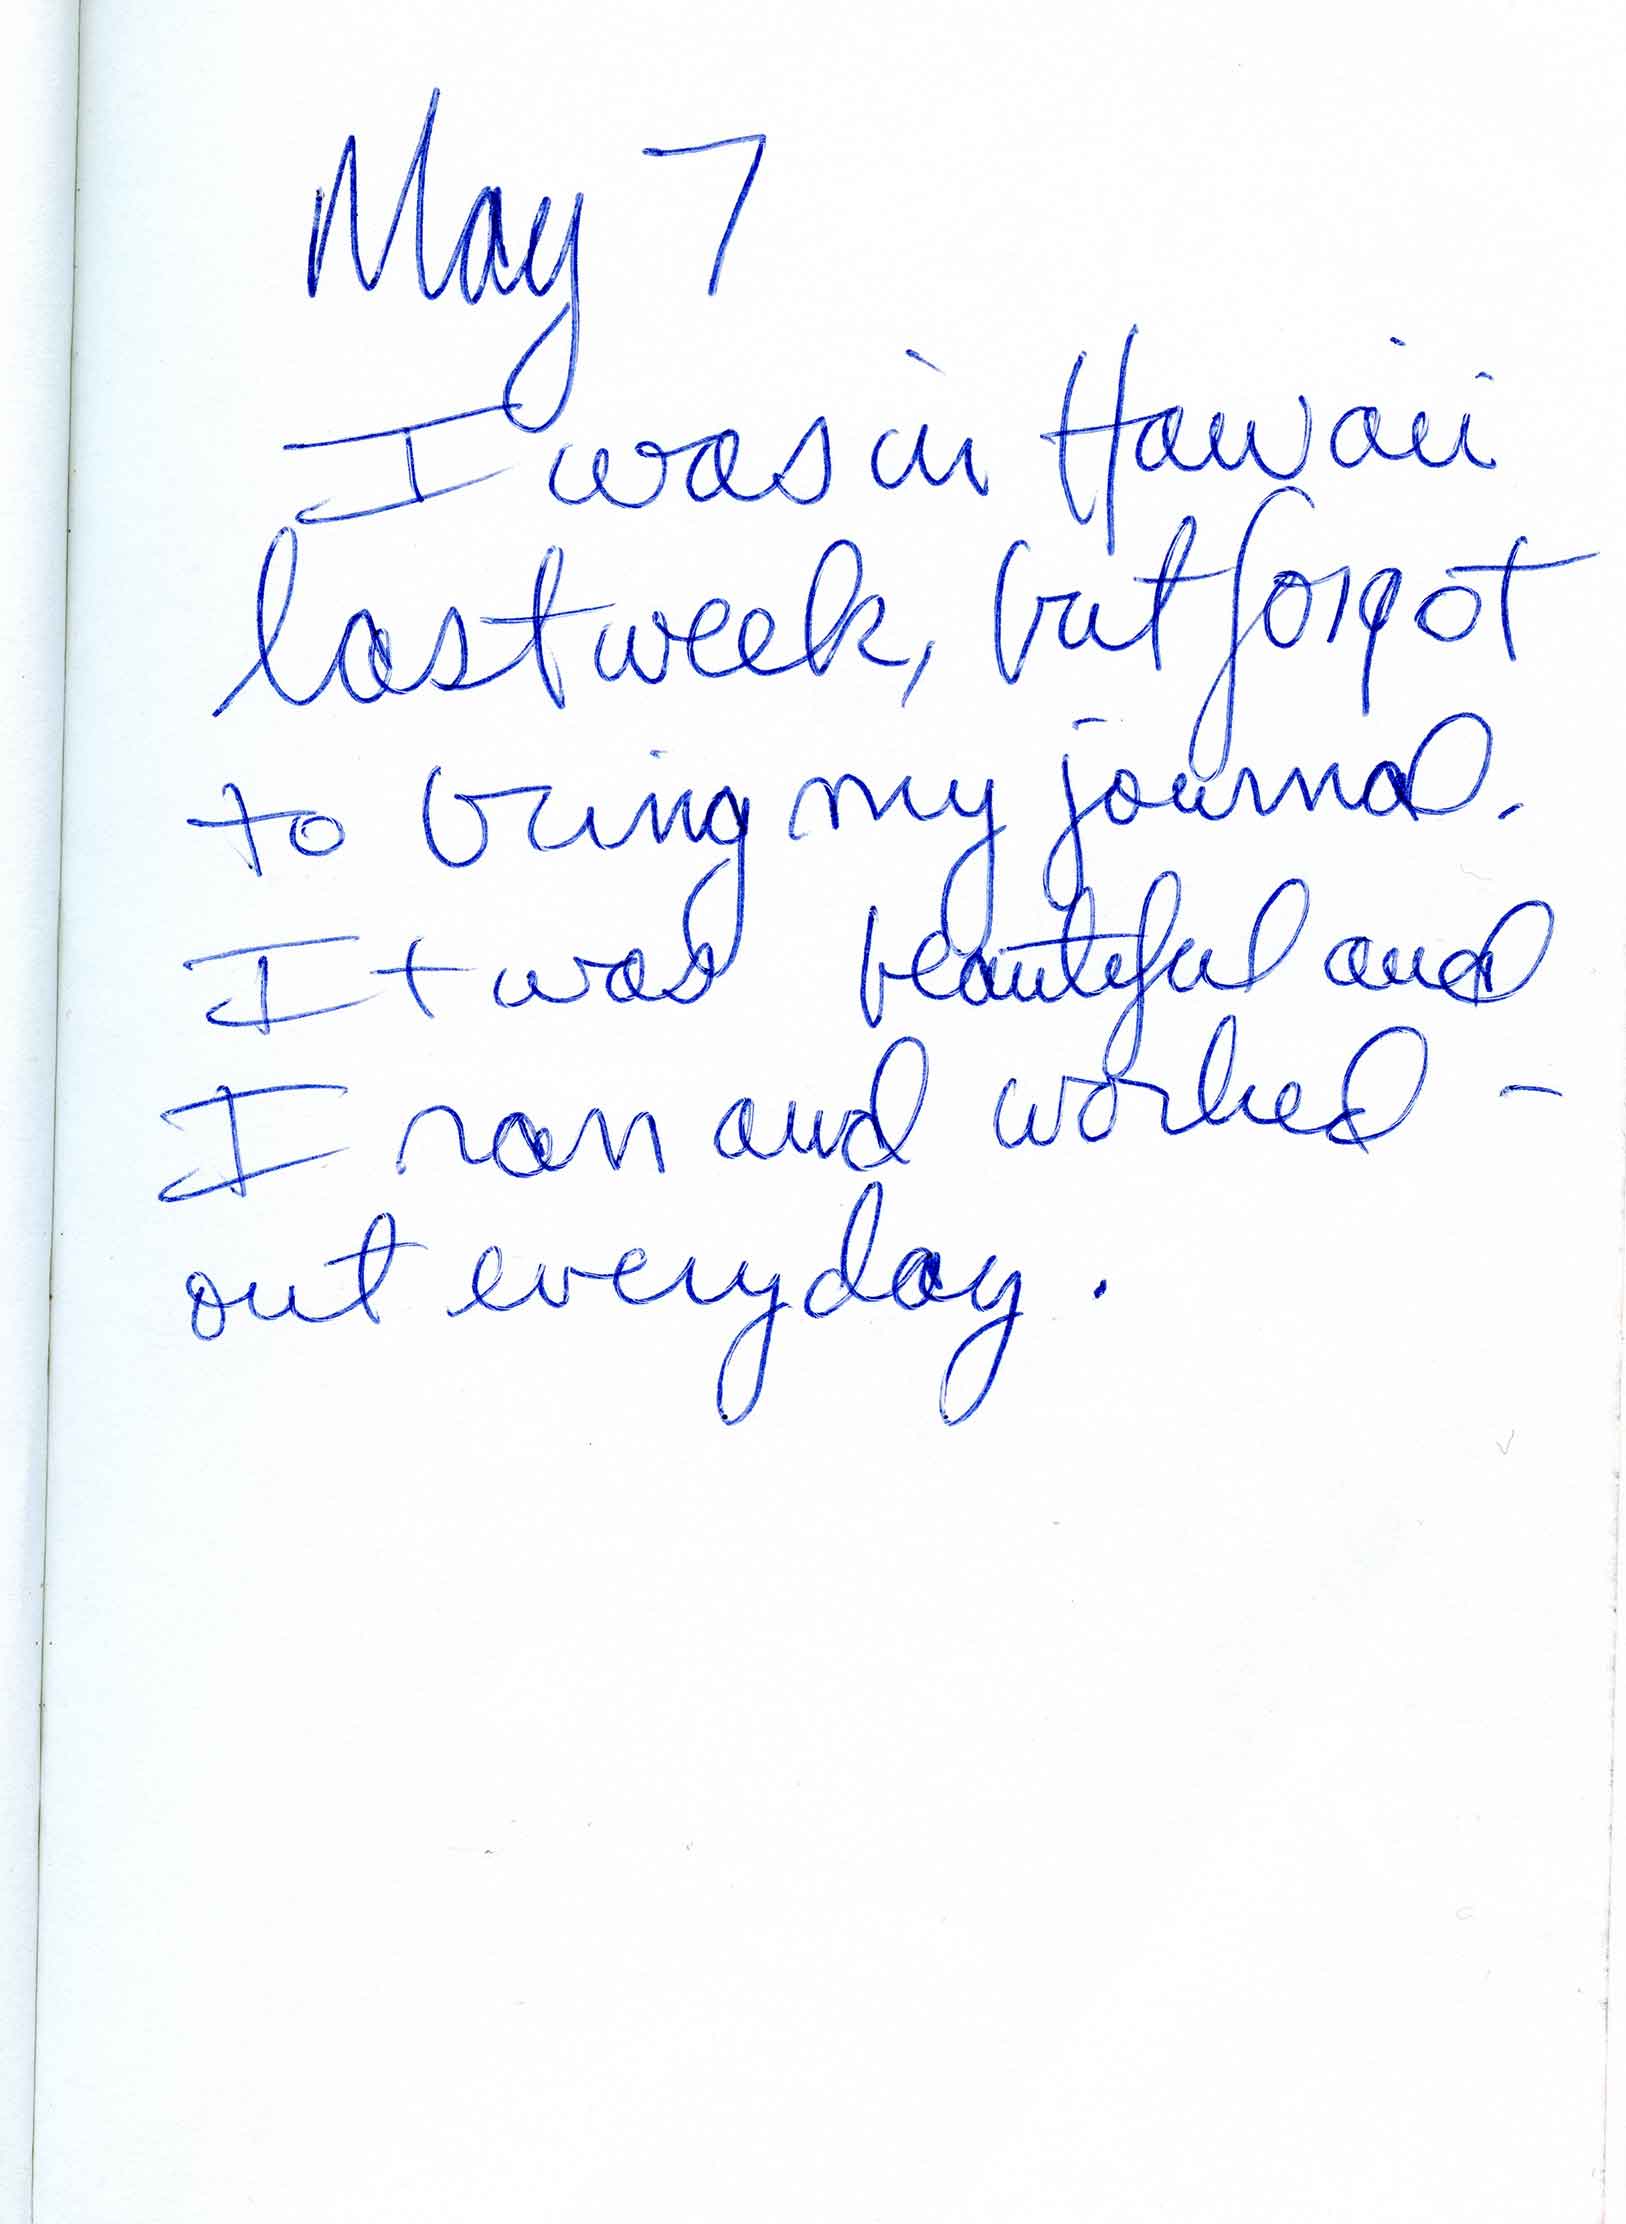 May 7
I was in Hawaii
last week, but forgot
to bring my journal.
It was beautiful and
I ran and worked -
out everyday.